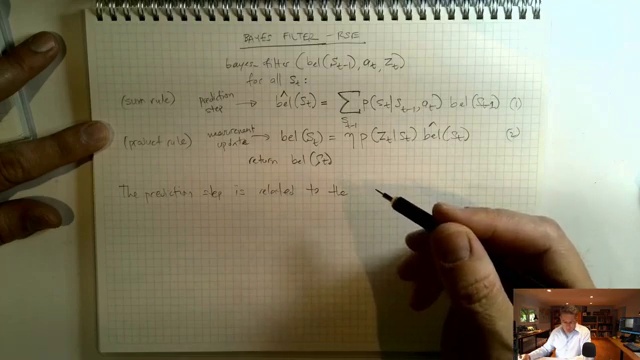 BAYES FILTER - RSE
bayes-filter (bel(S_{t-1}), a_t, Z_t)
for all S_t:
(sum rule) prediction step → bel^(S_t) = ∑_{S_{t-1}} P(S_t|S_{t-1}, a_t) bel(S_{t-1}) (1)
(product rule) measurement update → bel(S_t) = η P(Z_t|S_t) bel^(S_t) (2)
return bel(S_t)
The prediction step is related to the